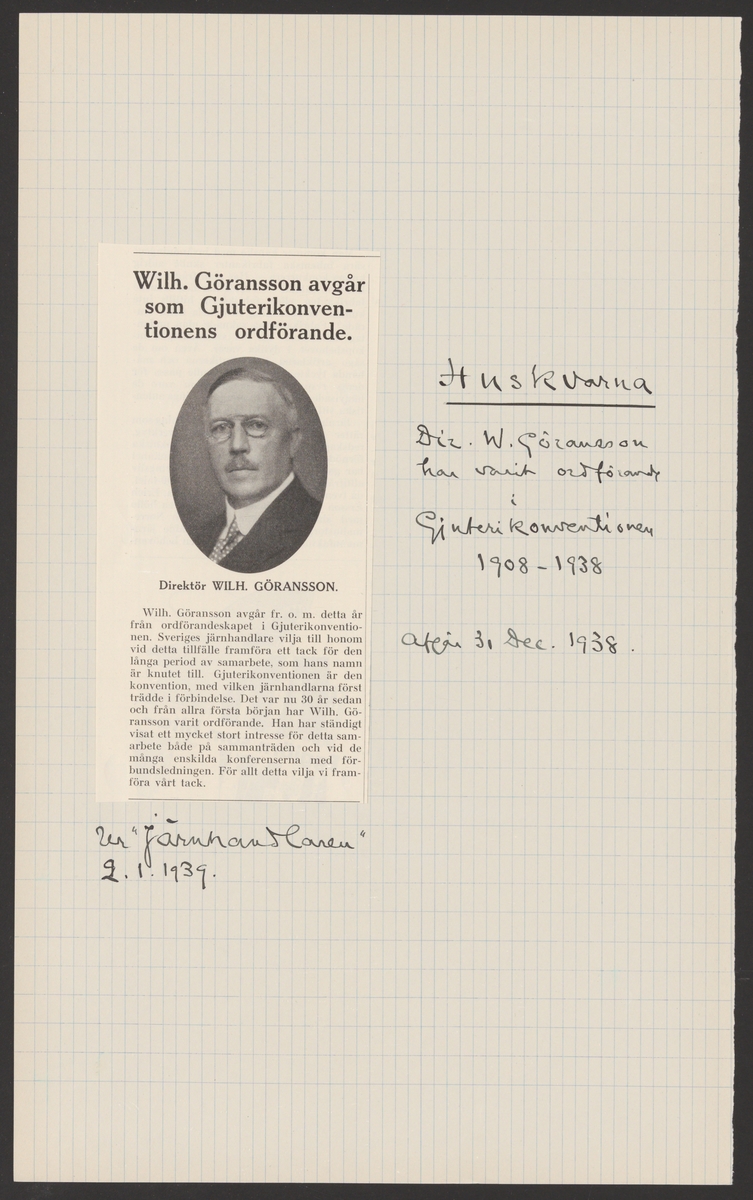 Wilh. Göransson avgår
som Gjuterikonven-
tionens ordförande.
Direktör WILH. GÖRANSSON.
Wilh. Göransson avgår fr. o. m. detta år
från ordförandeskapet i Gjuterikonventio-
nen. Sveriges järnhandlare vilja till honom
vid detta tillfälle framföra ett tack för den
långa period av samarbete, som hans namn
är knutet till. Gjuterikonventionen är den
konvention, med vilken järnhandlarna först
trädde i förbindelse. Det var nu 30 år sedan
och från allra första början har Wilh. Gö-
ransson varit ordförande. Han har ständigt
visat ett mycket stort intresse för detta sam-
arbete både på sammanträden och vid de
många enskilda konferenserna med för-
bundsledningen. För allt detta vilja vi fram-
föra vårt tack.
Ur "Järnhandlaren"
2.1.1939.
Huskvarna
Dir. W. Göransson
har varit ordförande
i
Gjuterikonventionen
1908-1938
Afgår 31 Dec. 1938.